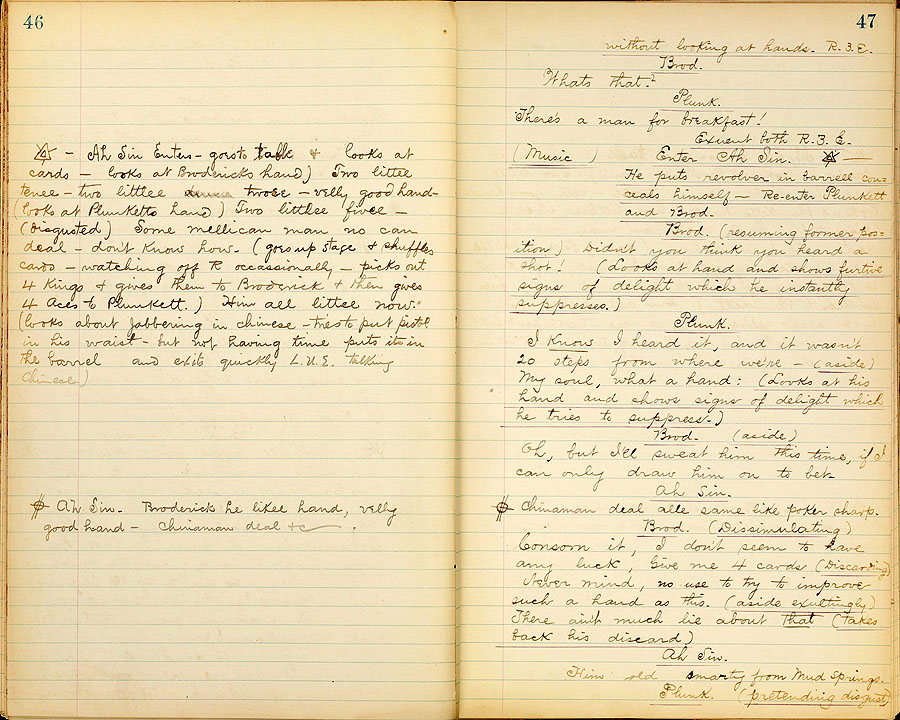 46
- Ah Sin Enters - goes to table & looks at
cards - looks at Brodericks hand) Two littee
tenee - two littlee twose - velly good hand -
(looks at Plunketts hand) Two littlee fivee -
(disgusted) Some mellican man no can
deal - don't know how. (goes up stage & shuffles
cards - watching off R occassionally - picks out
4 Kings & gives them to Broderick & then gives
4 Aces to Plunkett.) Him all littee now.
(looks about jabbering in chinese - tries to put pistol
in his waist - but not having time puts it in
the barrel and exits quickly L.U.E. talking
Chinese)
Ah Sin. Broderick he likee hand, velly
good hand - Chinaman deal &c
47
without looking at hands. R.3.E.
Brod.
Whats that?
Plunk.
There's a man for breakfast!
Exeunt both R.3.E.
(Music ) Enter Ah Sin.
He puts revolver in barrell con=
ceals himself - Re-enter Plunkett
and Brod.
Brod. (resuming former pos=
ition) Didn't you think you heard a
shot! (Looks at hand and shows furtive
signs of delight which he instantly
suppresses.)
Plunk.
I know I heard it, and it wasn't
20 steps from where we've - (aside)
My soul, what a hand: (Looks at his
hand and shows signs of delight which
he tries to suppress.)
Brod. (aside)
Oh, but I'll sweat him this time, if I
can only draw him on to bet.
Ah Sin.
Chinaman deal alle same like poker sharp.
Brod. (Dissimulating)
Consorn it, I don't seem to have
any luck, Give me 4 cards (Discarding)
Never mind, no use to try to improve
such a hand as this. (aside exultingly)
There ain't much lie about that (takes
back his discard)
Ah Sin.
Him old smarty from Mud Springs.
Plunk. (pretending disgust)